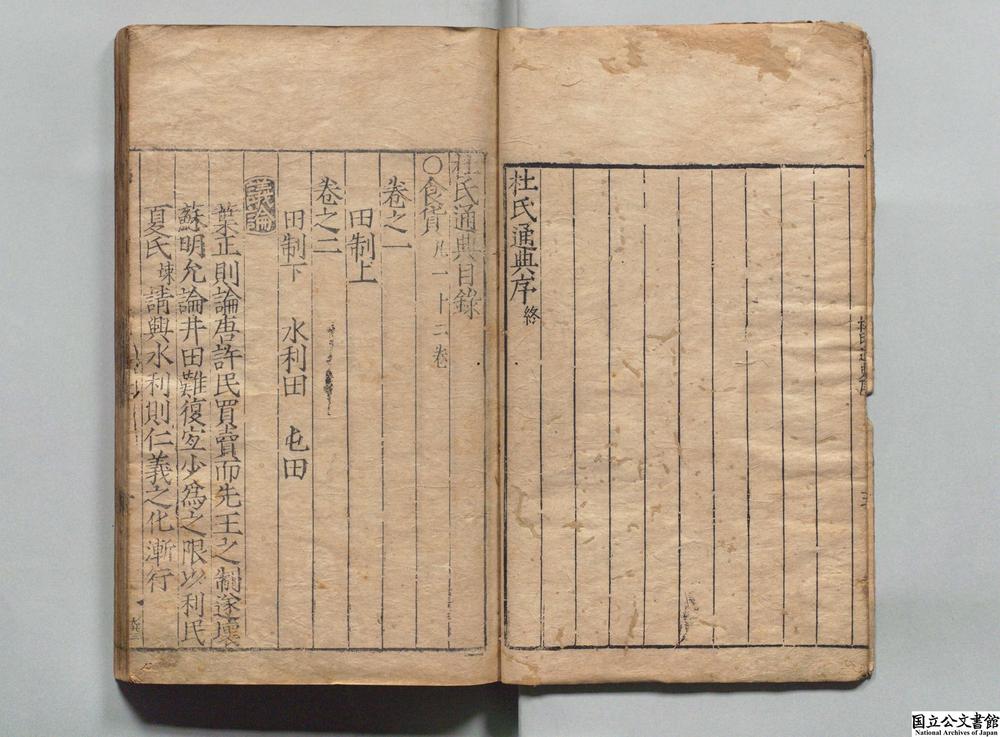 杜氏通典序 終
杜氏通典目錄
○食貨 凡一十二卷
卷之一
田制上
卷之二
田制下 水利田 屯田
議論
葉正則論唐許民買賣而先王之制遂壞
蘇明允論井田難復宜少爲之限以利民
夏氏 竦 請興水利則仁義之化漸行
国立公文書館
National Archives of Japan